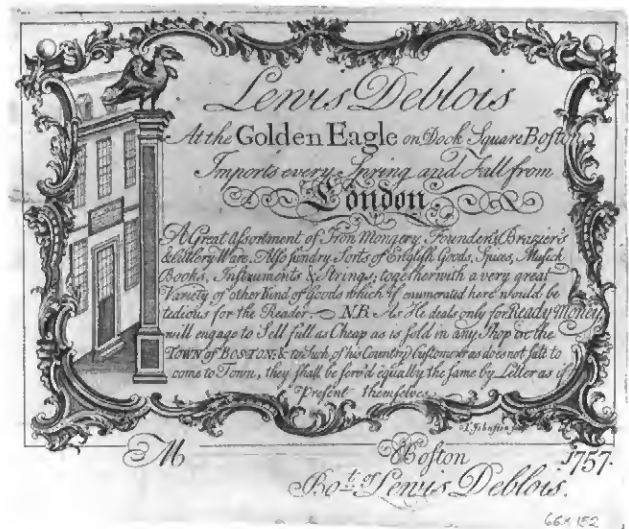 Lewis Deblois
At the Golden Eagle on Dock Square Boston
Imports every Spring and Fall from
London
A Great Assortment of Iron Mongery, Founders, Brazier's
& Cutlery Ware. Also sundry Sorts of English Goods, Spices, Musick
Books, Instruments & Strings; together with a very great
Variety of other kind of Goods which if enumerated here would be
tedious for the Reader. N.B. As He deals only for Ready Money
will engage to Sell full as Cheap as is sold in any Shop on the
TOWN of BOSTON: & to such of his Country Customers as does not suit to
come to Town, they shall be serv'd equally the same by Letter as if
Present themselves
Johnston
M Boston 1757.
Bo.t of Lewis Deblois.
66x152